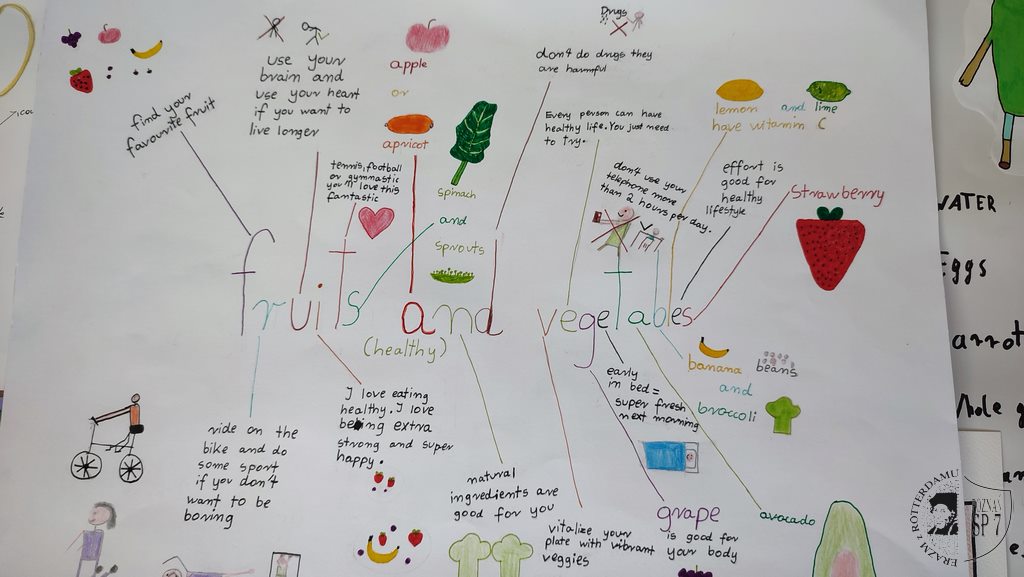 Drugs
don't do drugs they
are harmful
use your
brain and
use your heart
if you want to
live longer
apple
or
apricot
find your
favourite fruit
tennis, football
or gymnastic
you'll love this
fantastic
spinach
and
sprouts
Every person can have
healthy life. You just need
to try.
lemon
and lime
have vitamin C
don't use your
telephone more
than 2 hours per day.
effort is
good for
healthy
lifestyle
strawberry
fruits and vegetables
(healthy)
banana
beans
and
broccoli
early
in bed=
super fresh
next morning
I love eating
healthy. I love
being extra
strong and super
happy.
ride on the
bike and do
some sport
if you don't
want to be
boring
natural
ingredients are
good for you
vitalize your
plate with vibrant
veggies
grape
is good for
your body
avocado
WATER
Eggs
arrot
hole
ERAZM z ROTTERDAMU
POZNAŃ
SP 7